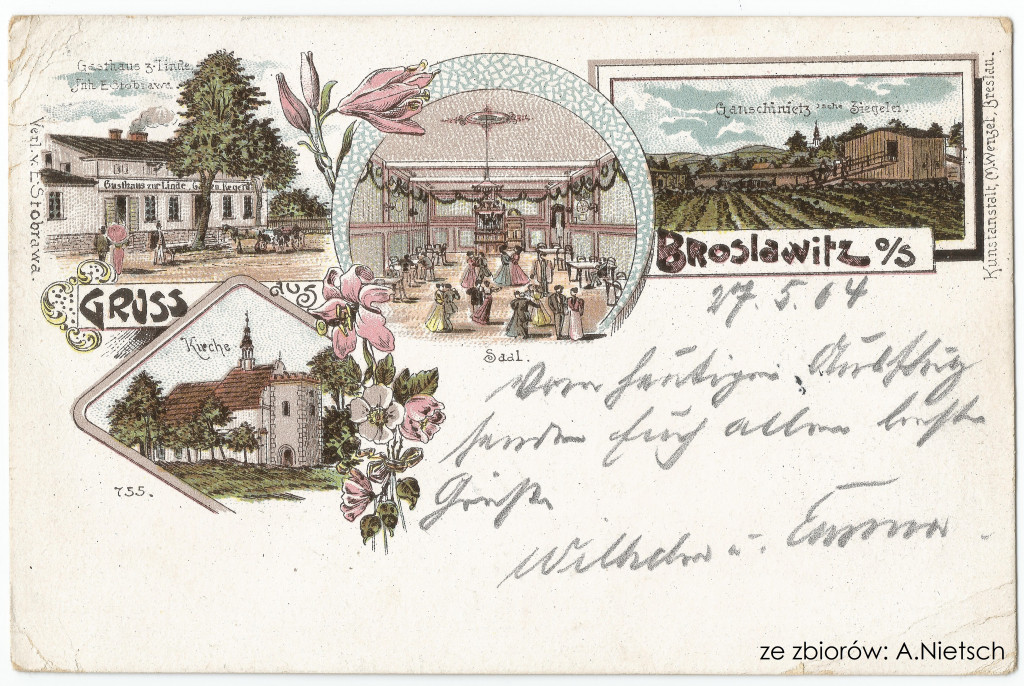 Gasthaus z. Linde
Inh. E. Stobrawa
Verl. v. E. Stobrawa.
Gasthaus zur Linde
GRUSS
aus
BROSLAWITZ O/S
Ganschinietz'sche Ziegelei.
Kunstanstalt, (M. Wenzel, Breslau.
Saal.
Kirche
755.
27.5.04
Vom heutigen Ausflug
senden Euch allen beste
Grüße
Wilhelm u.
ze zbiorów: A.Nietsch